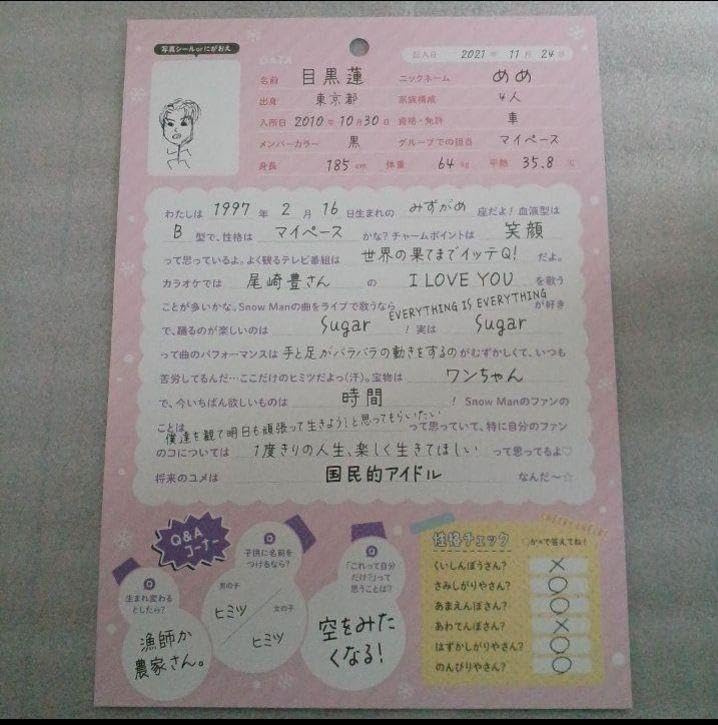 写真シールorにがおえ
DATA
記入日 2021年 11月 24日
名前 目黒蓮 ニックネーム めめ
出身 東京都 家族構成 4人
入所日 2010年10月30日 資格・免許 車
メンバーカラー 黒 グループでの担当 マイペース
身長 185cm 体重 64kg 平熱 35.8℃
わたしは 1997年 2月 16日生まれの みずがめ 座だよ!血液型は
B 型で、性格は マイペース かな?チャームポイントは 笑顔
って思っているよ。よく観るテレビ番組は 世界の果てまでイッテQ! だよ。
カラオケでは 尾崎豊さん の I LOVE YOU を歌う
ことが多いかな。Snow Manの曲をライブで歌うなら EVERYTHING IS EVERYTHING が好き
で、踊るのが楽しいのは Sugar !実は Sugar
って曲のパフォーマンスは 手と足がバラバラの動きをするの がむずかしくて、いつも
苦労してるんだ…ここだけのヒミツだよっ(汗)。宝物は ワンちゃん
で、今いちばん欲しいものは 時間 ! Snow Manのファンの
ことは 僕達を観て明日も頑張って生きようと思ってもらいたい って思っていて、特に自分のファン
のコについては 1度きりの人生、楽しく生きてほしい って思ってるよ♡
将来のユメは 国民的アイドル なんだ〜☆
Q&A
コーナー
Q
生まれ変わる
としたら?
漁師か
農家さん。
Q
子供に名前を
つけるなら?
男の子
ヒミツ
女の子
ヒミツ
Q
「これって自分
だけ?」って
思うことは?
空をみた
くなる!
性格チェック ○か×で答えてね!
くいしんぼうさん? ×
さみしがりやさん? ○
あまえんぼさん? ○
あわてんぼさん? ×
はずかしがりやさん? ○
のんびりやさん? ○